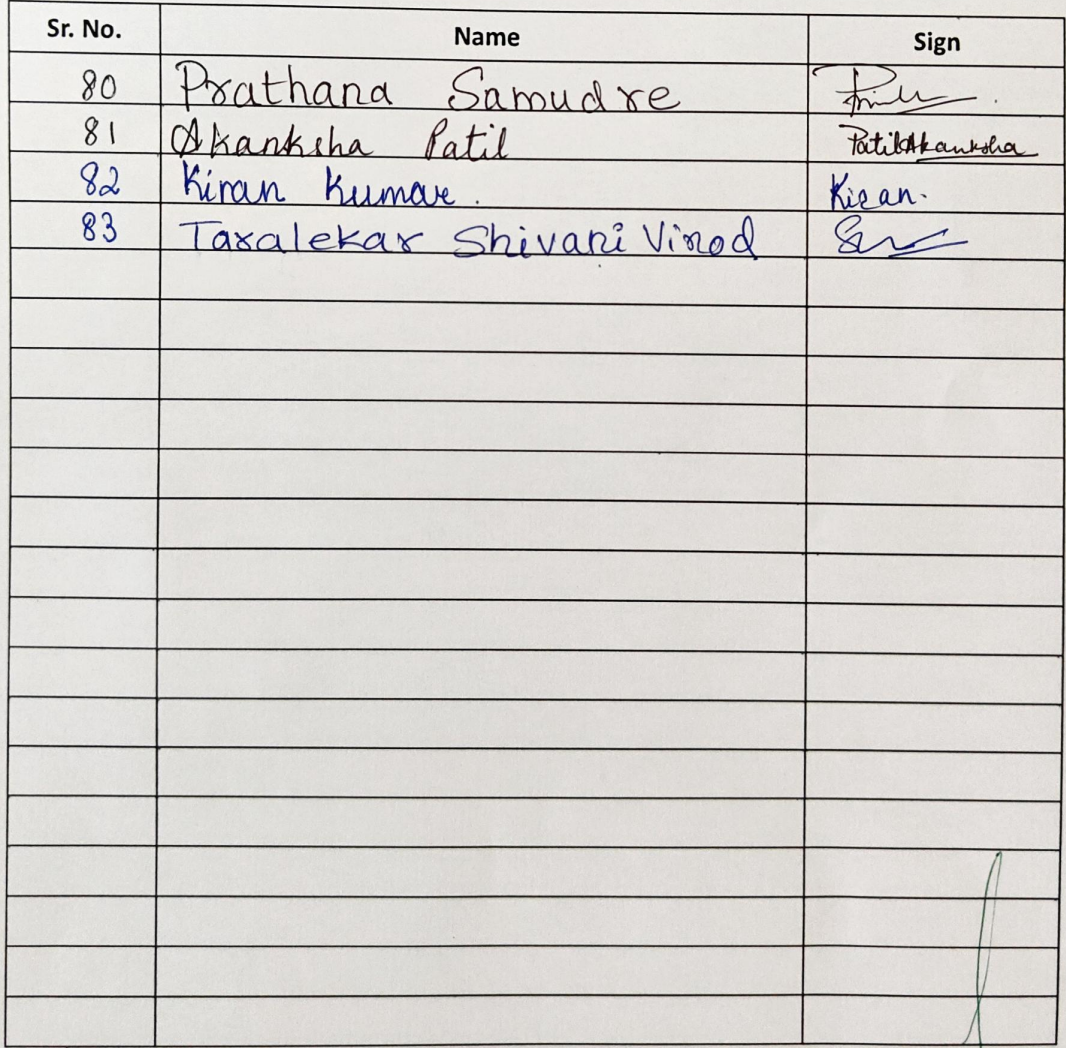 Sr. No. Name Sign
80 Prathana Samudre
81 Akanksha Patil PatilAkanksha
82 Kiran Kumar. Kiran.
83 Taralekar Shivani Vinod